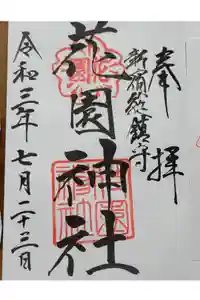 奉拝
新宿総鎮守
花園神社
令和三年七月二十三日